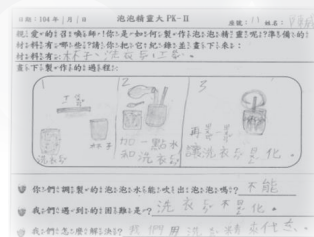 日期:104年 /月 /日 泡泡精靈大PK-II 座號:11 姓名:
親愛的召喚師!你是如何製作泡泡精靈呢?準備的
材料有哪些?請你把它紀錄並畫下來:
材料有:杯子、洗衣粉、工具。
畫下製作的過程:
1 2 3
工具
洗衣粉 杯子
加一點水
加洗衣粉
再累一累
讓洗衣粉是化。
你們調製的泡泡水能吹出泡泡嗎? 不能
我們遇到的困難是? 洗衣粉不是化。
我們怎麼解決? 我們用洗